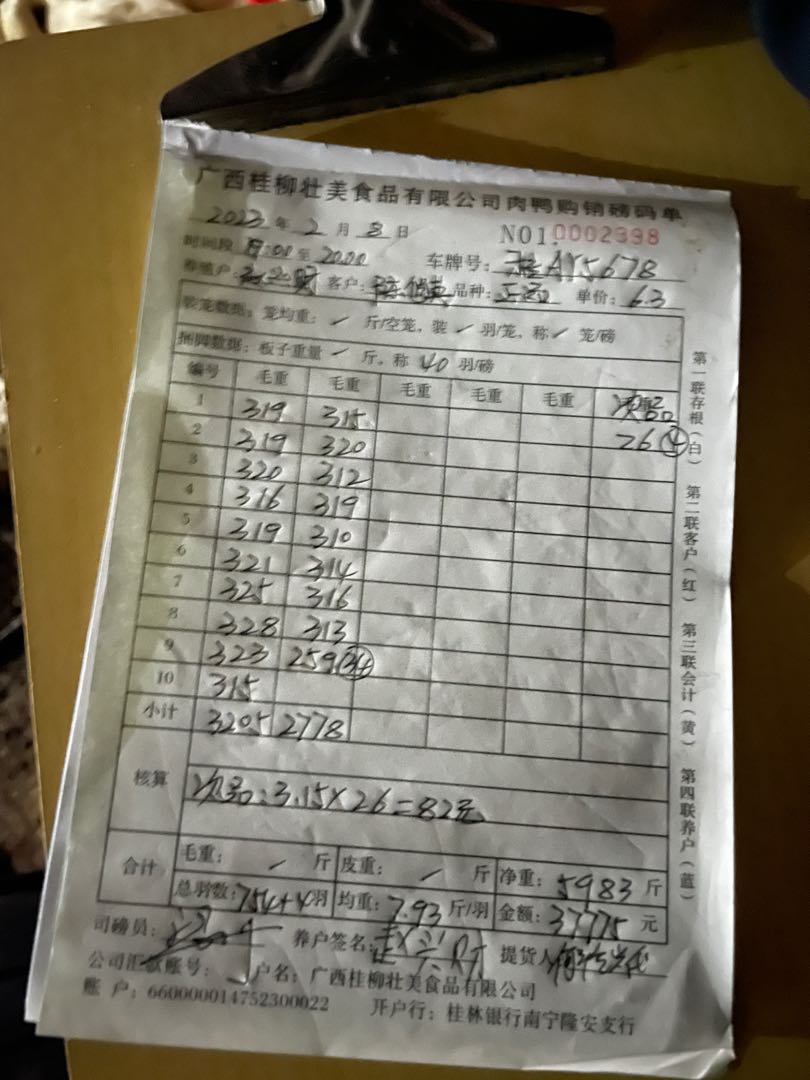 广西桂柳壮美食品有限公司肉鸭购销磅码单
2023年2月8日 NO1.0002398
时间段 :00至20:00 车牌号:桂AY5678
养殖户: 客户: 品种: 单价:6.3
装笼数据:笼均重:✓斤/空笼,装✓羽/笼,称✓笼/磅
捆脚数据:板子重量✓斤,称40羽/磅
编号 毛重 毛重 毛重 毛重 毛重 次品
1 319 315 26④
2 319 320
3 320 312
4 316 319
5 319 310
6 321 314
7 325 316
8 328 313
9 323 259(34)
10 315
小计 3205 2778
核算 次品:3.15×26=82元
合计 毛重:✓斤 皮重:✓斤 净重:5983斤
总羽数:754+4羽 均重:7.93斤/羽 金额:37775元
司磅员: 养户签名:赵兴财 提货人
公司汇款账号: 户名:广西桂柳壮美食品有限公司
账户:660000014752300022 开户行:桂林银行南宁隆安支行
第一联存根(白) 第二联客户(红) 第三联会计(黄) 第四联养户(蓝)